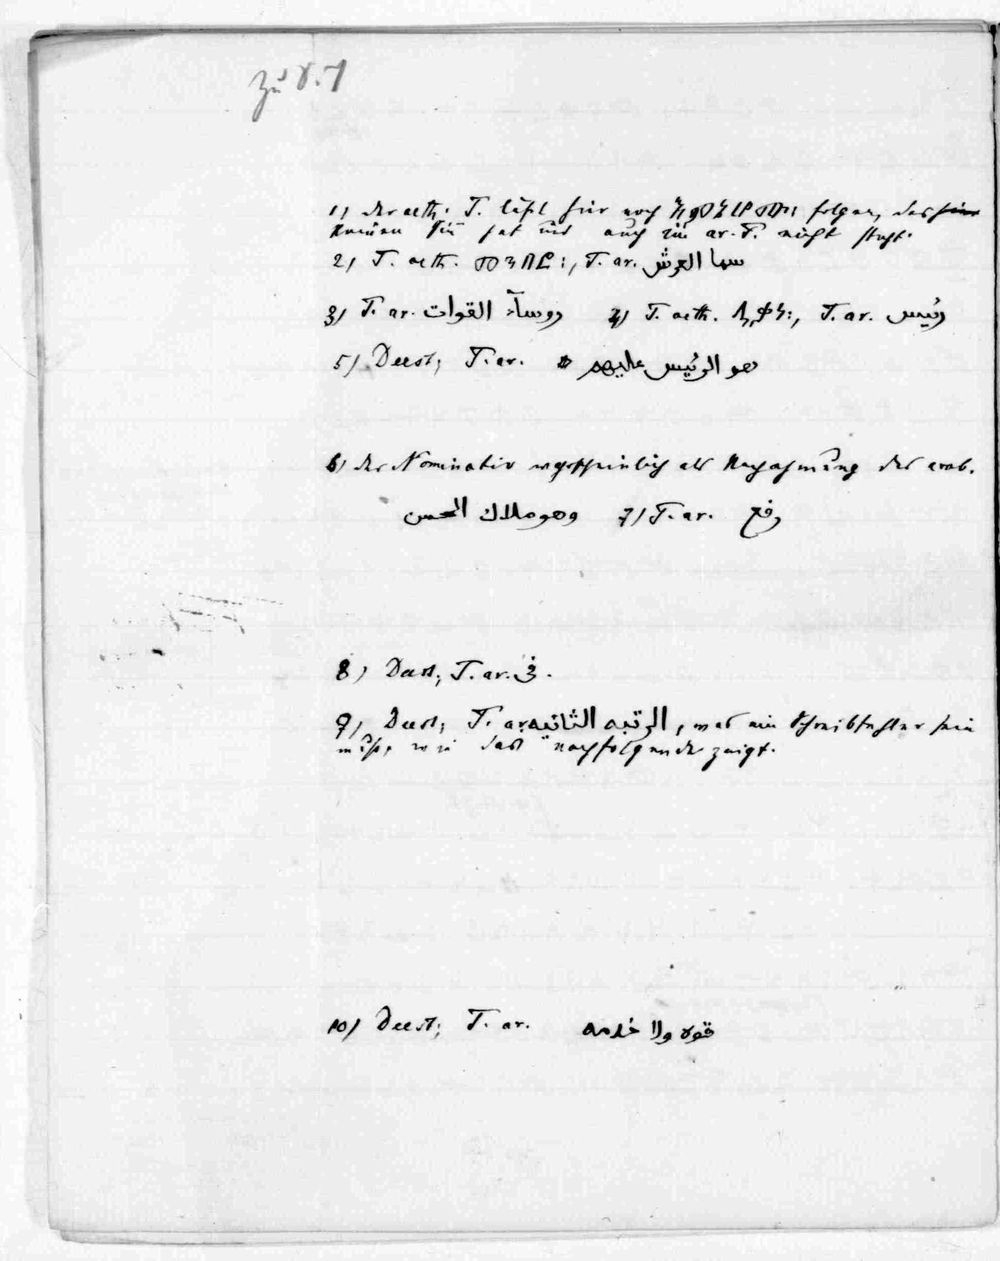 zu S. 7
1) Der aeth. T. läßt hier noch folgen, das
keinen Sinn hat und auch im ar. T. nicht steht.
2) T. aeth. መንበር፡, T. ar. سما العرش
3) T. ar. روسآء القوات 4) T. aeth. ሊቃነ፡, T. ar. رئيس
5) Deest; T. ar. هو الرئيس عليهم
6) Der Nominativ wahrscheinlich als Nachahmung des arab.
وهو ملاك 7) T. ar. رفع
8) Deest; T. ar. في.
9) Deest; T. ar. الرتبه الثانيه, was ein Schreibfehler sein
muß, wie das nachfolgende zeigt.
10) Deest; T. ar. قوه ولا خدمه